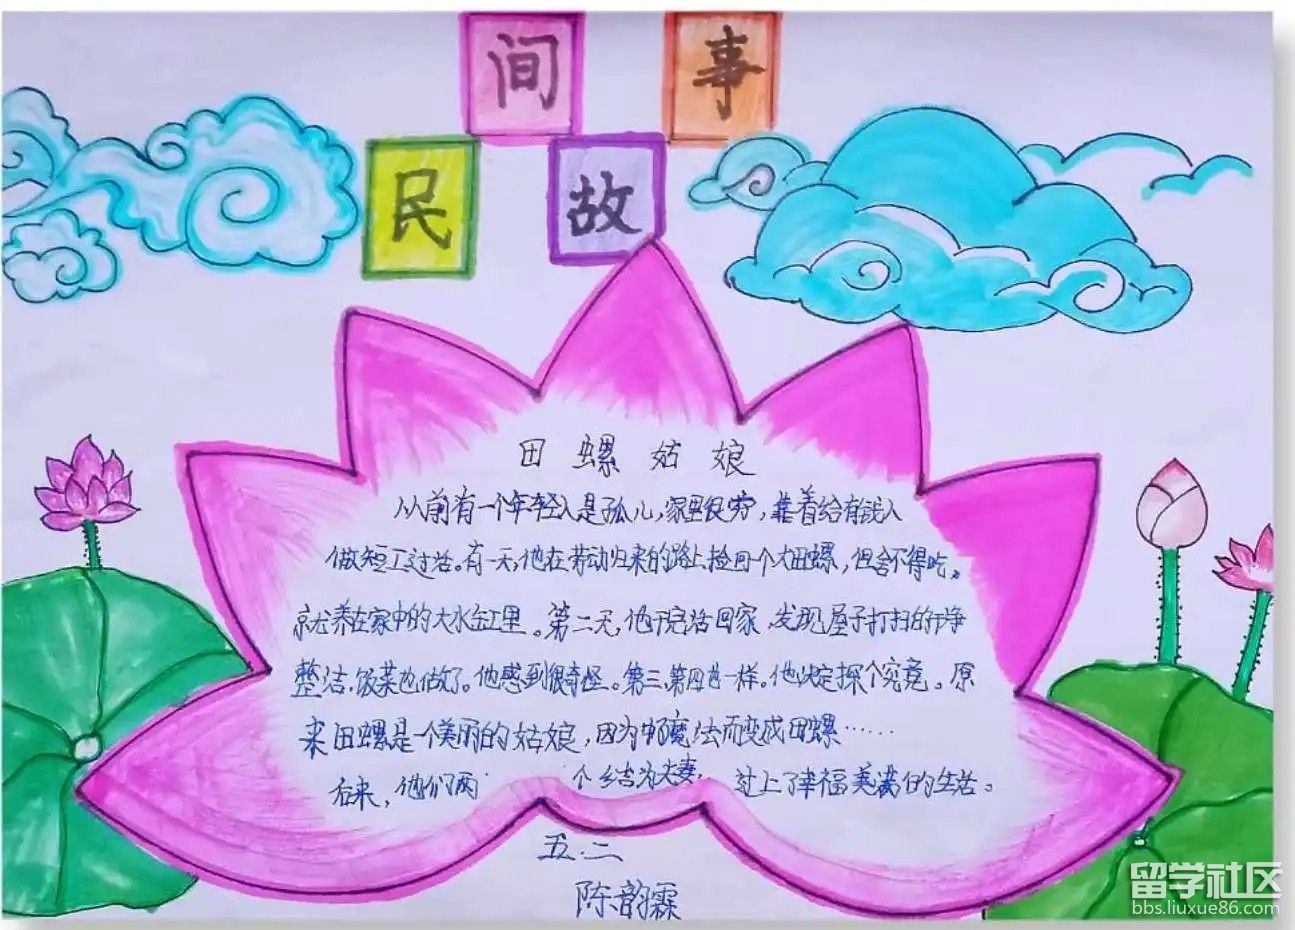 民间故事
田螺姑娘
从前有一个年轻人是孤儿，家里很穷，靠着给有钱人
做短工过活。有一天，他在劳动归来的路上捡回一个大田螺，但舍不得吃。
就养在家中的大水缸里。第二天，他干完活回家，发现屋子打扫的干净
整洁，饭菜也做好了。他感到很奇怪。第三、第四也一样。他决定探个究竟。原
来田螺是一个美丽的姑娘，因为中魔法而变成田螺……
后来，他们两个结为夫妻，过上了幸福美满的生活。
五.二
陈韵霖
留学社区
bbs.liuxue86.com